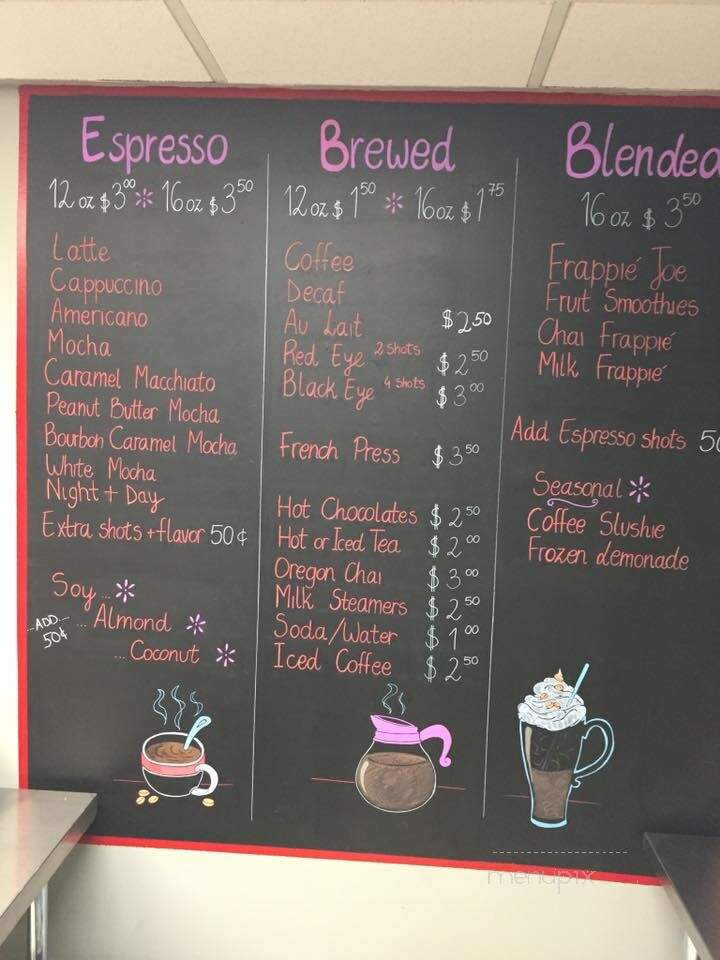 Espresso
12 oz $3.00 * 16 oz $3.50
Latte
Cappuccino
Americano
Mocha
Caramel Macchiato
Peanut Butter Mocha
Bourbon Caramel Mocha
White Mocha
Night + Day
Extra shots + flavor 50¢
Soy ... *
...ADD... 50¢
... Almond *
... Coconut *
Brewed
12 oz $1.50 * 16 oz $1.75
Coffee
Decaf
Au Lait $2.50
Red Eye 2 shots $2.50
Black Eye 4 shots $3.00
French Press $3.50
Hot Chocolates $2.50
Hot or Iced Tea $2.00
Oregon Chai $3.00
Milk Steamers $2.50
Soda/Water $1.00
Iced Coffee $2.50
Blended
16 oz $3.50
Frappié Joe
Fruit Smoothies
Chai Frappié
Milk Frappié
Add Espresso shots 50
Seasonal *
Coffee Slushie
Frozen Lemonade
menupix